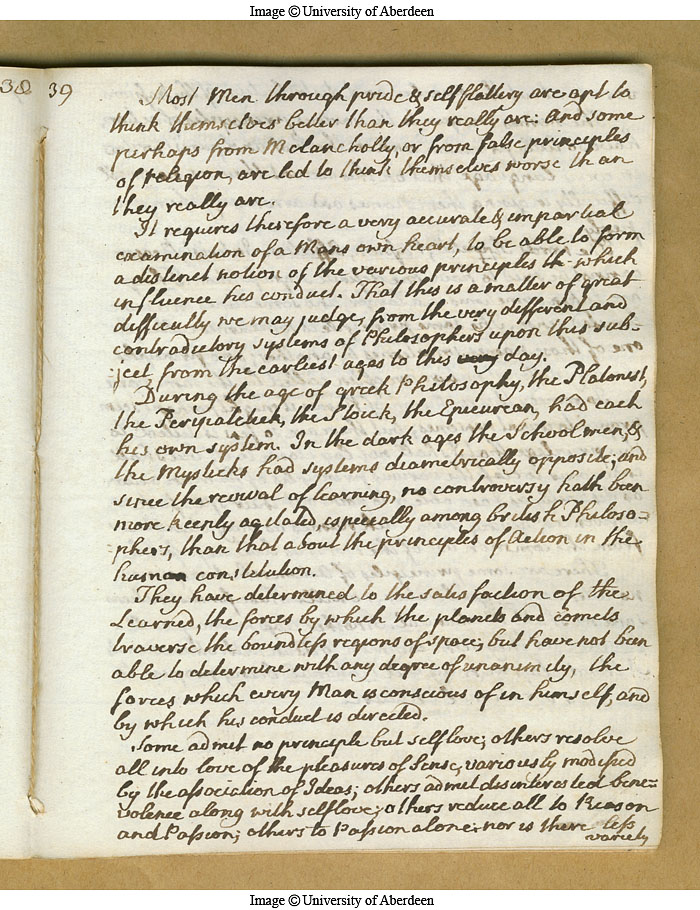 Image © University of Aberdeen
38 39
Most Men through pride & self flattery are apt to
think themselves better than they really are: And some
perhaps from Melancholly, or from false principles
of religion, are led to think themselves worse than
they really are.
It requires therefore a very accurate & impartial
examination of a Mans own heart, to be able to form
a distinct notion of the various principles th which
influence his conduct. That this is a matter of great
difficulty we may judge, from the very different and
contradictory systems of Philosophers upon this sub-
ject, from the earliest ages to this very day.
During the age of greek Philosophy, the Platonist,
the Peripatetick, the Stoick, the Epicurean, had each
his own system. In the dark ages the School men, &
the Mysticks had systems diametrically opposite; and
since the revival of learning, no controversy hath been
more keenly agitated, especially among british Philoso-
phers, than that about the principles of Action in the
human constitution.
They have determined to the satisfaction of the
Learned, the forces by which the planets and comets
traverse the boundless regions of space; but have not been
able to determine with any degree of unanimity, the
forces which every Man is conscious of in himself, and
by which his conduct is directed.
Some admit no principle but self love; others resolve
all into love of the pleasures of Sense, variously modified
by the association of Ideas; others admit disinterested bene=
volence along with self love; others reduce all to Reason
and Passion; others to Passion alone; nor is there less
variety
Image © University of Aberdeen